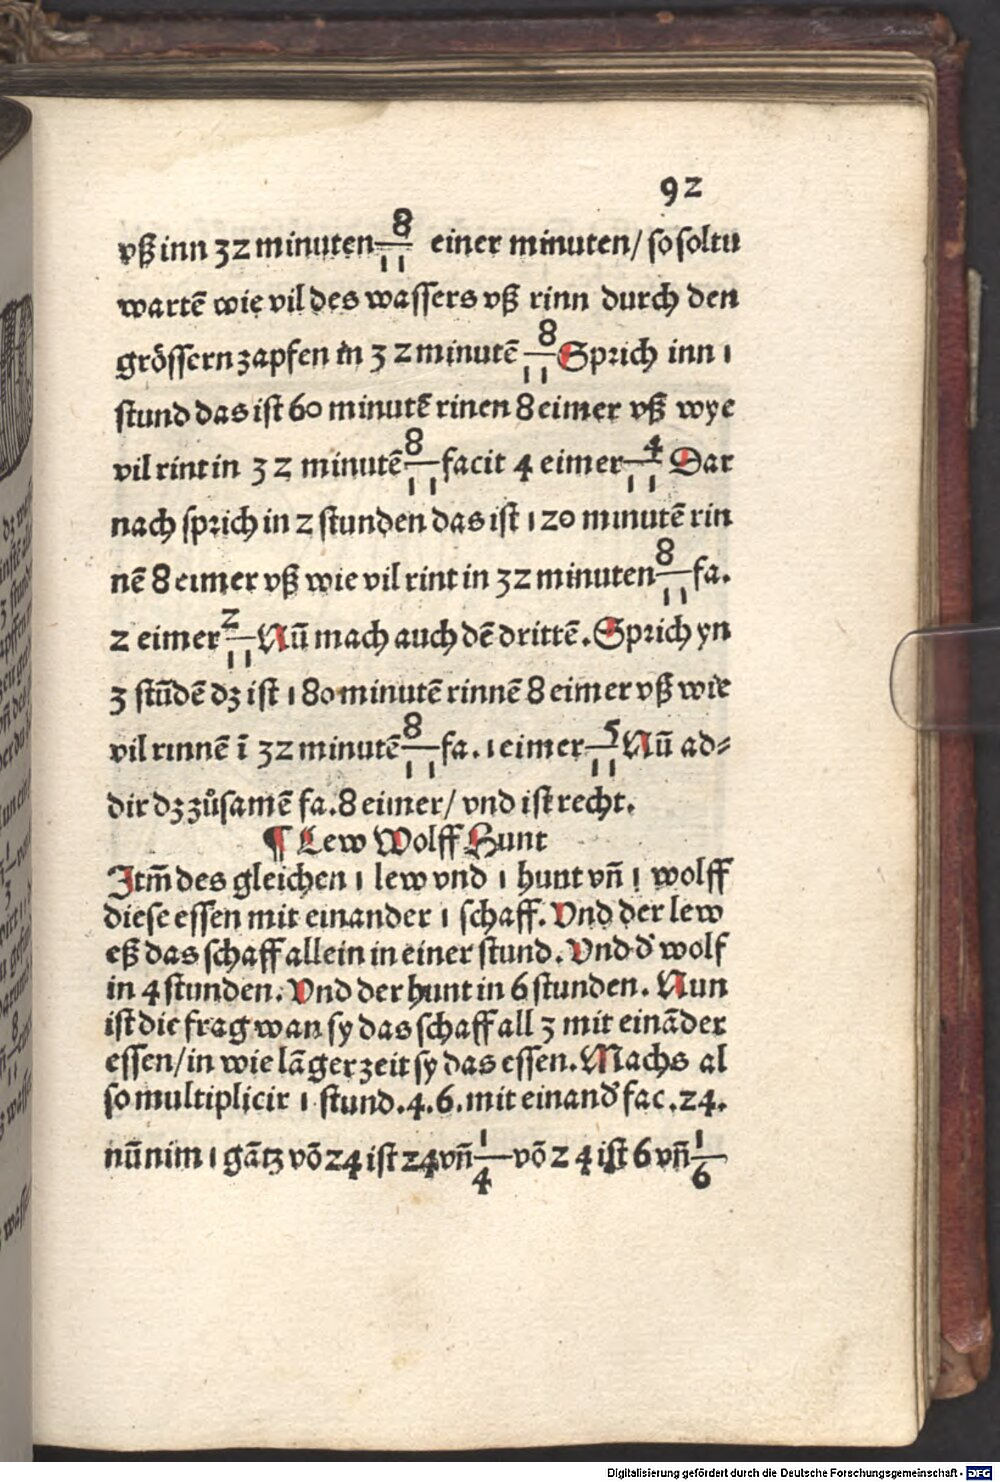 92
vß inn 32 minuten 8/11 einer minuten/ so soltu
wartē wie vil des wassers vß rinn durch den
grössern zapfen in 32 minutē 8/11 Sprich inn 1
stund das ist 60 minutē rinen 8 eimer vß wye
vil rint in 32 minutē 8/11 facit 4 eimer 4/11 Dar
nach sprich in 2 stunden das ist 120 minutē rin
nē 8 eimer vß wie vil rint in 32 minuten 8/11 fa.
2 eimer 2/11 Nū mach auch dē drittē. Sprich yn
3 stūdē dz ist 180 minutē rinnē 8 eimer vß wie
vil rinnē ī 32 minutē 8/11 fa. 1 eimer 5/11 Nū ad⸗
dir dz zůsamē fa. 8 eimer/ vnd ist recht.
¶ Lew Wolff Hunt
Itm̄ des gleichen 1 lew vnd 1 hunt vñ 1 wolff
diese essen mit einander 1 schaff. Vnd der lew
eß das schaff allein in einer stund. Vnd d' wolf
in 4 stunden. Vnd der hunt in 6 stunden. Nun
ist die frag wan sy das schaff all 3 mit eināder
essen/ in wie lāger zeit sy das essen. Machs al
so multiplicir 1 stund. 4. 6. mit einand' fac. 24.
nū nim 1 gātz vō 24 ist 24 vñ 1/4 vō 24 ist 6 vñ 1/6
Digitalisierung gefördert durch die Deutsche Forschungsgemeinschaft - DFG